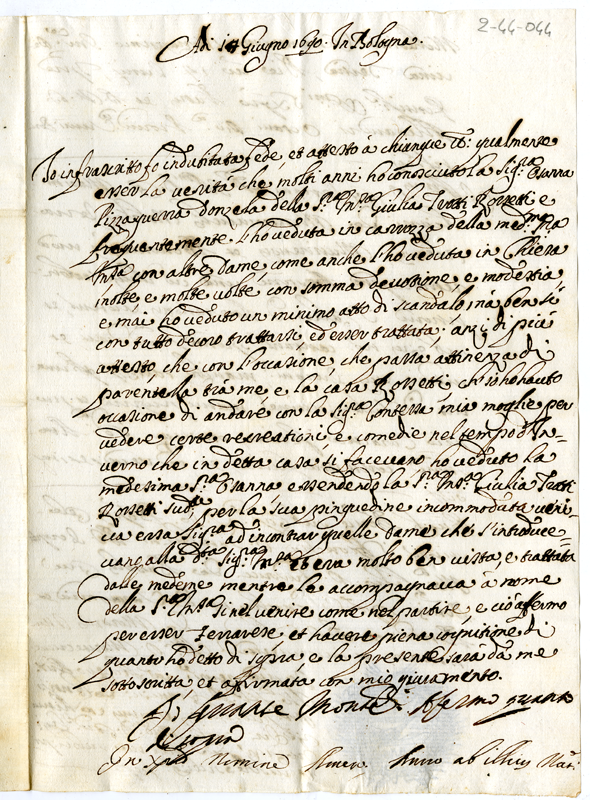 2-44-044
Adi 14 Giugno 1690. In Bologna.
Io infrascritto fo indubitata fede, et attesto à chiunque qualmente
esser la verità che molti anni ho conosciuto la Sig.ra Osanna
Pinzaguerra donzela della S.ra Giulia Trotti Rossetti e
frequentemente l'ho veduta in carrozza della med.ma
con altre Dame, come anche l'ho veduta in Chiesa
molte, e molte volte, con somma devotione, e modestia
e mai ho veduto un minimo atto di scandalo, mà ben sì
con tutto decoro trattarsi, ed esser trattata; anzi di più
attesto, che con l'occasione, che passa attinenza di
parentela trà me, e la casa Rossetti, ch'io ho hauto
occasione di andare con la Sig.ra Contessa mia moglie per
vedere certe recreationi e comedie nel tempo d'In=
verno che in detta casa si facevano ho veduto la
medesima S.ra Osanna essendo la S.ra Giulia Trotti
Rossetti sud.ta per la sua pinguedine incommodata veni=
va essa Sig.ra ad incontrar quelle dame che s'introduce=
vano alla d.ta Sig.ra et era molto ben vista, e trattata
dalle medeme mentre le accompagnava à nome
della S.ra sì nel venire come nel partire, e ciò affermo
per esser Ferrarese, et havere piena cognitione di
quanto ho detto di sopra, e la presente sarà dà me
sottoscritta, et affirmata con mio giuramento.
affermo quanto
di sopra
In Nomine Amen. Anno ab illius Nat.